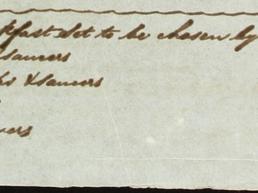 kfast Set to be chosen by
Saucers
ps & Saucers
cers